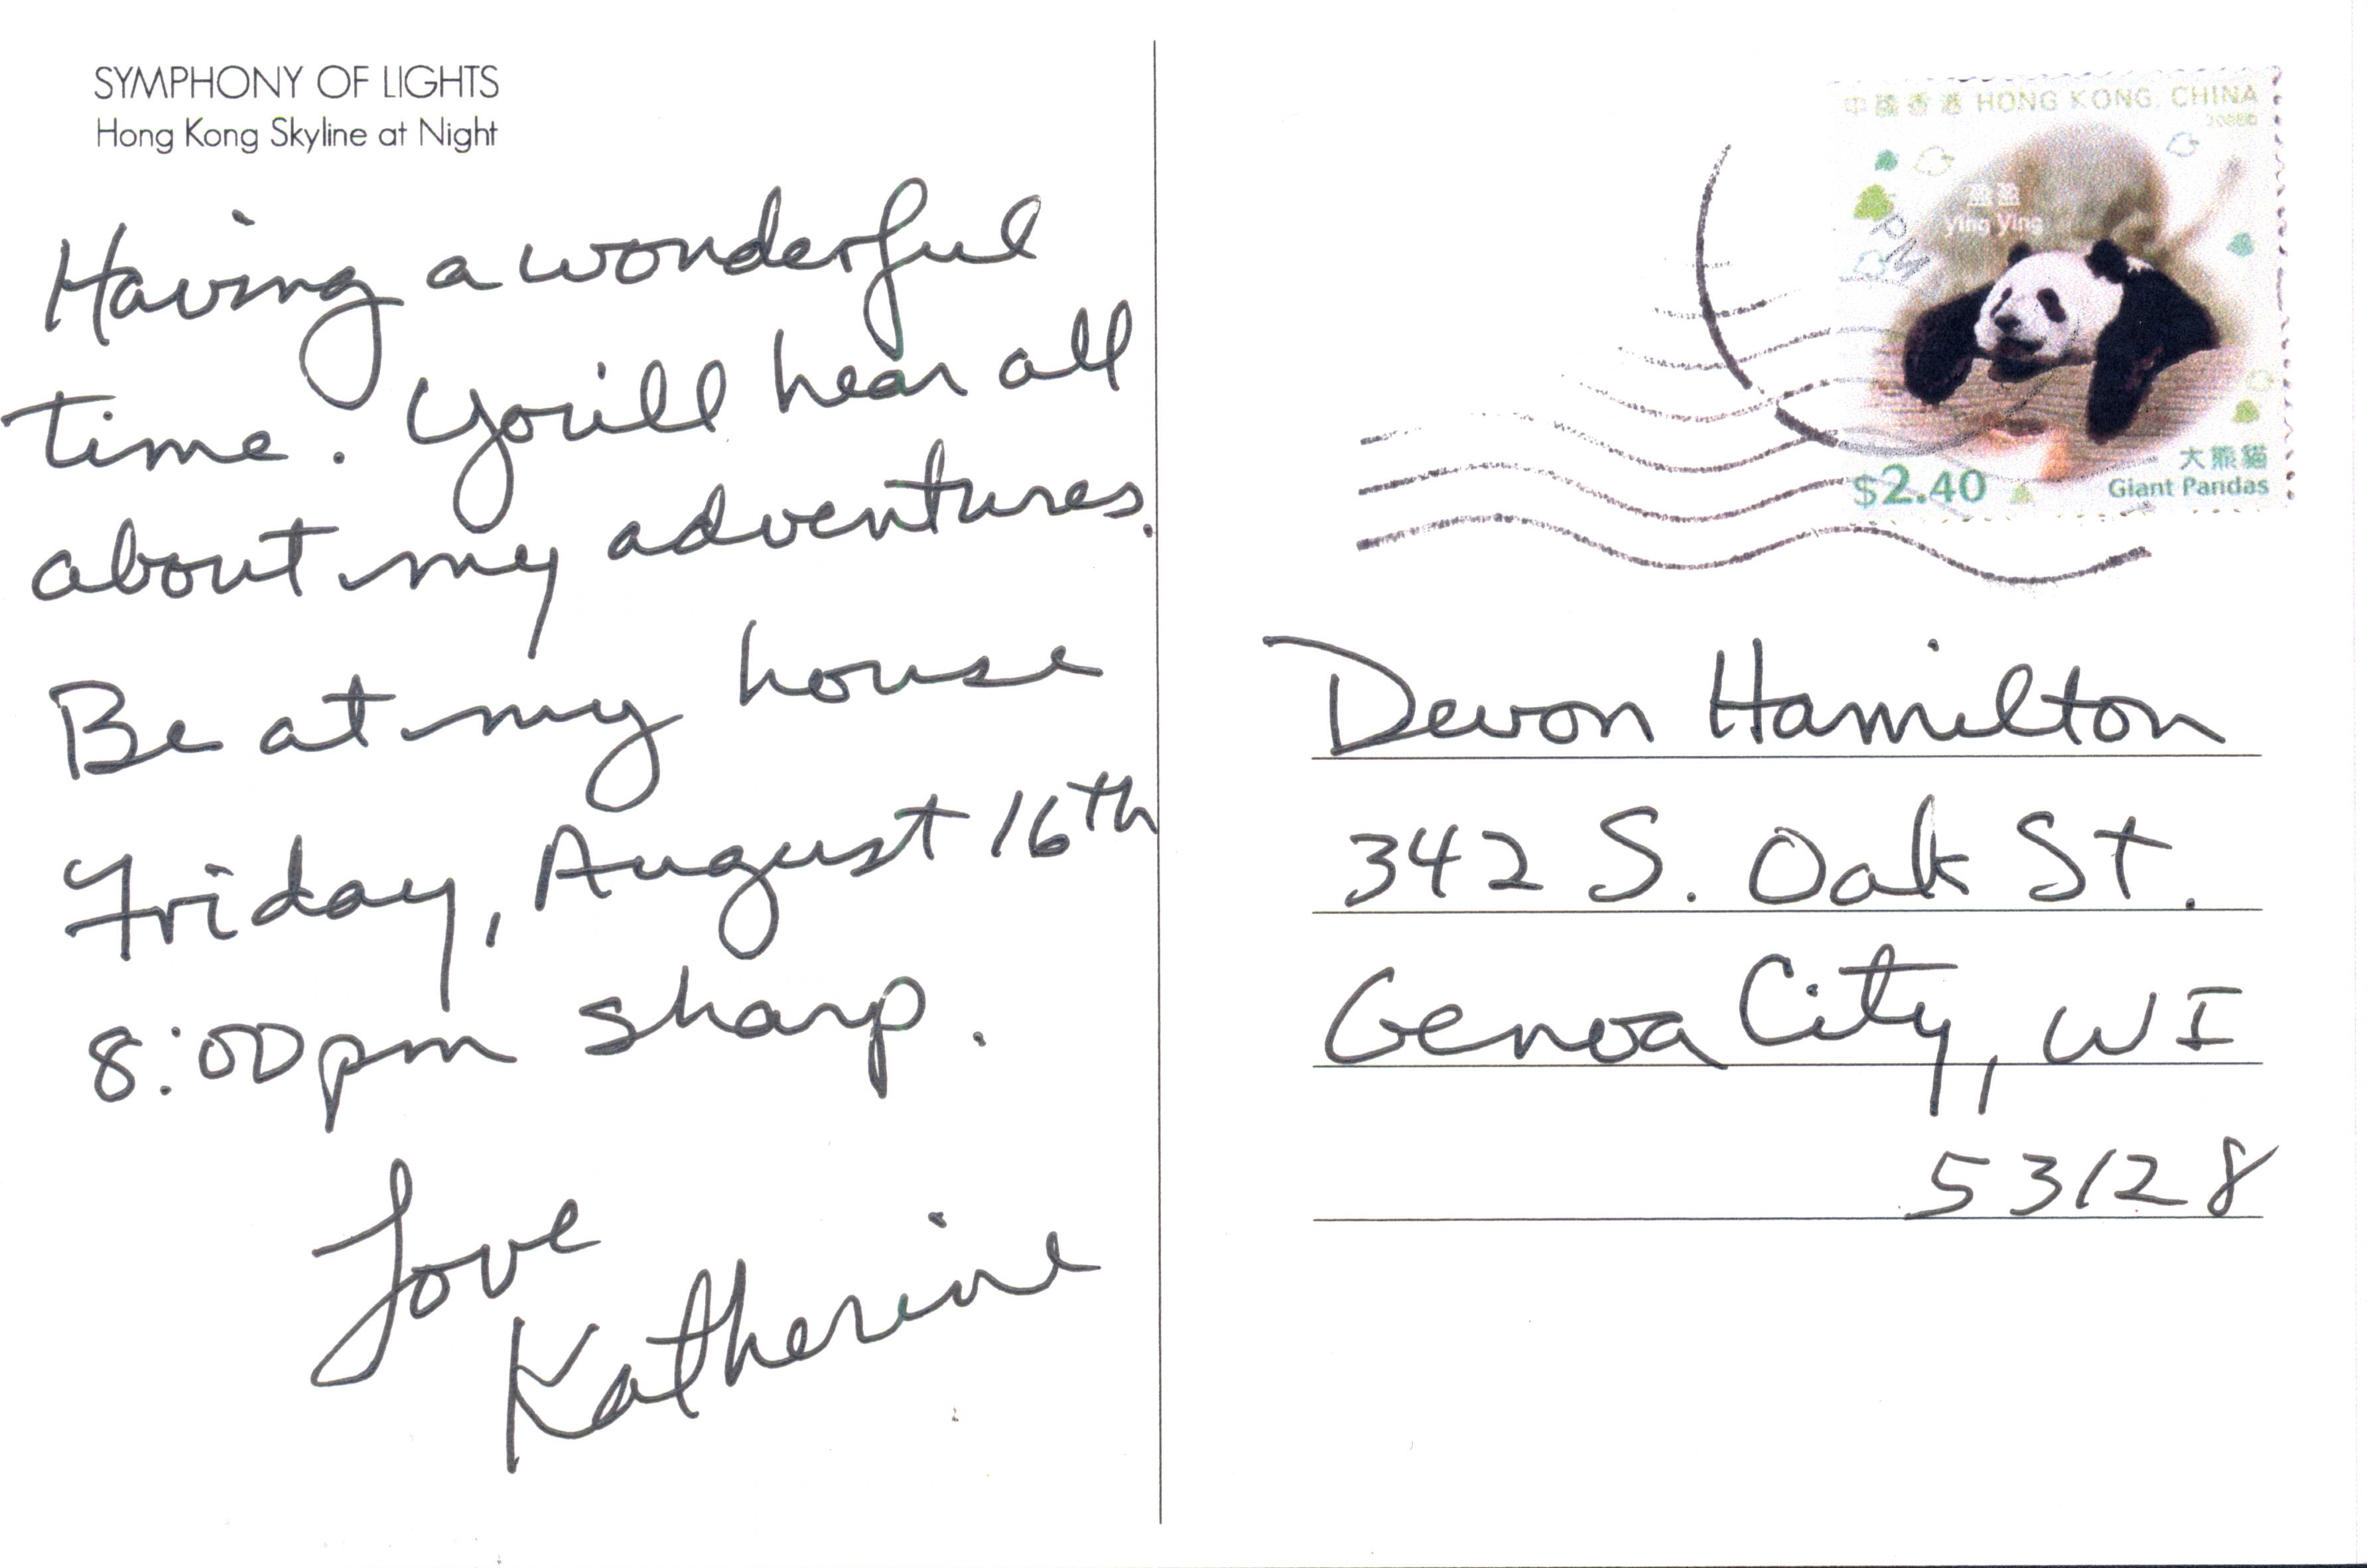 SYMPHONY OF LIGHTS
Hong Kong Skyline at Night
Having a wonderful
time. You'll hear all
about my adventures.
Be at my house
Friday, August 16th
8:00pm sharp.
Love
Katherine
中國香港 HONG KONG, CHINA
盈盈
Ying Ying
PM
$2.40
大熊貓
Giant Pandas
Devon Hamilton
342 S. Oak St.
Genoa City, WI
53128